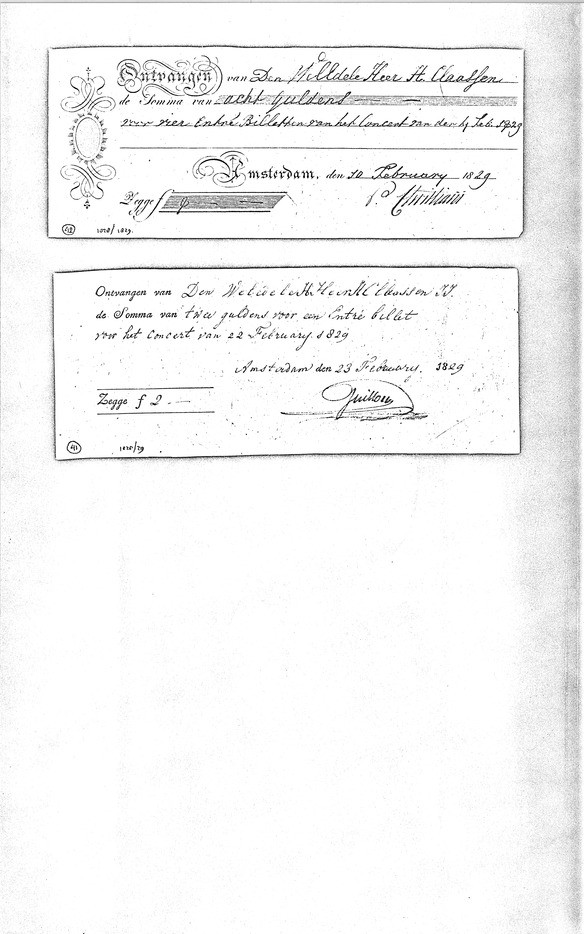 Ontvangen van Den WelEdele Heer H. Claassen
de Somma van acht guldens
voor vier Entré Billetten van het Concert van der 1829
Amsterdam, den 10 February 1829
Zegge f 8
42 1828/1829.
Ontvangen van Den WelEdele H. Heer H Claassen
de Somma van twee guldens voor een Entré billet
voor het Concert van 22 February 1829
Amsterdam den 23 February. 1829
Zegge f 2
41 1828/29